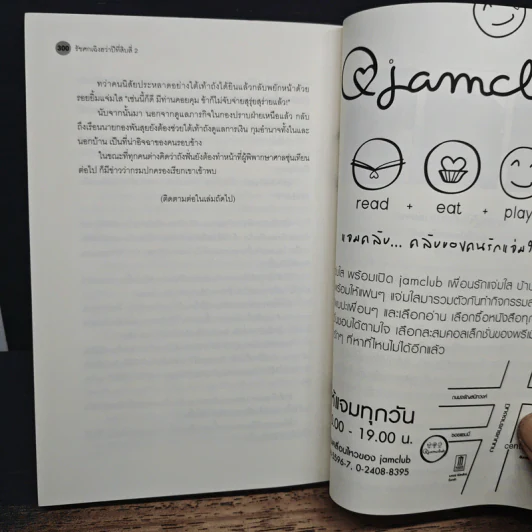 300 รัชศกเฉิงฮว่าปีที่สิบสี่ 2
ทว่าคนนิสัยประหลาดอย่างใต้เท้าถังได้ยินแล้วกลับพยักหน้าด้วย
รอยยิ้มแจ่มใส "เช่นนี้ก็ดี มีท่านคอยคุม ข้าก็ไม่จับจ่ายสุรุ่ยสุร่ายแล้ว!"
นับจากนั้นมา นอกจากดูแลภารกิจในกองปราบฝ่ายเหนือแล้ว กลับ
ถึงเรือนนายกองพันสุยยังต้องช่วยใต้เท้าถังดูแลการเงิน กุมอำนาจทั้งในและ
นอกบ้าน เป็นที่น่าอิจฉาของคนรอบข้าง
ในขณะที่ทุกคนต่างคิดว่าถังฟั่นยังต้องทำหน้าที่ผู้พิพากษาศาลซุ่นเทียน
ต่อไป ก็มีข่าวว่ากรมปกครองเรียกเขาเข้าพบ
(ติดตามต่อในเล่มถัดไป)
jamcl
read + eat + play
แจ่มคลับ... คลับของคนรักแจ่ม
พร้อมเปิด jamclub เพื่อนรักแจ่มใส
ให้แฟนๆ แจ่มใสมารวมตัวกันทำกิจกรรม
เพื่อนๆ และเลือกอ่าน เลือกซื้อหนังสือทุก
ได้ตามใจ เลือกสะสมคอลเล็กชั่นของพรีเ
ที่หาที่ไหนไม่ได้อีกแล้ว
แจมทุกวัน
.00 - 19.00 น.
ของ jamclub
0596-7, 0-2408-8395
jamclub